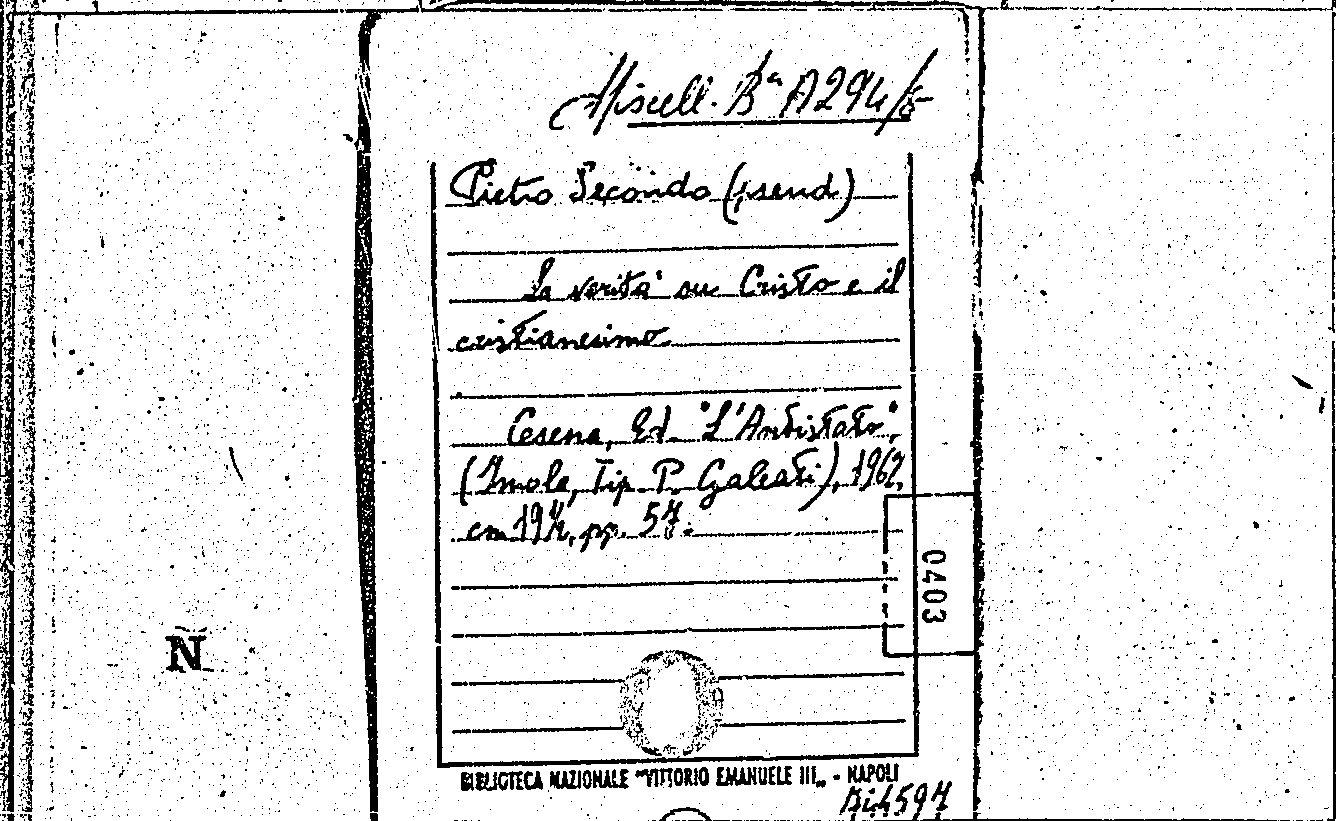 Miscell. Bª A294/5
Pietro Secondo (pseud)
La verità su Cristo e il
cristianesimo
Cesena, Ed. "L'Antistato",
(Imola, Tip. P. Galeati), 1962.
cm 19½, pp. 57.
0403
N
BIBLIOTECA NAZIONALE "VITTORIO EMANUELE III„ - NAPOLI